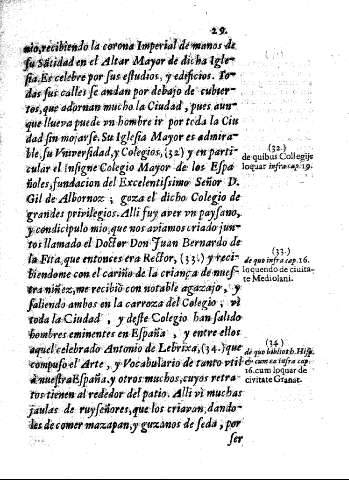 29.
nio, recibiendo la corona Imperial de manos de
su Sãtidad en el Altar Mayor de dicha Igle-
sia. Es celebre por sus estudios, y edificios. To-
das sus calles se andan por debajo de cubier-
tos, que adornan mucho la Ciudad, pues aun-
que llueva puede vn hombre ir por toda la Ciu
dad sin mojarse. Su Iglesia Mayor es admira-
ble, su Vniversidad, y Colegios, (32) y en parti-
cular el insigne Colegio Mayor de los Espa
ñoles, fundacion del Excelentissimo Señor D.
Gil de Albornoz; goza el dicho Colegio de
grandes privilegios. Alli fuy aver vn paysano,
y condicipulo mio, que nos aviamos criado jun-
tos llamado el Doctor Don Juan Bernardo de
la Fita, que entonces era Rector, (33.) y reci-
biendome con el cariño de la criança de nues-
tra niñez, me recibiò con notable agazajo, y
saliendo ambos en la carroza del Colegio, vi
toda la Ciudad, y deste Colegio han salido
hombres eminentes en España, y entre ellos
aquel celebrado Antonio de Lebrixa, (34.) que
compuso el Arte, y Vocabulario de tanto vtil
à nuestra España, y otros muchos, cuyos retra-
tos tienen al rededor del patio. Alli vi muchas
jaulas de ruyseñores, que los criavan, dando-
les de comer mazapan, y guzanos de seda, por
ser
(32.)
de quibus Collegijs
loquar infra cap. 19.
(33.)
de quo infra cap. 16.
loquendo de ciuita-
te Mediolani.
(34)
de quo biblioth. Hisp.
& cum sa infra cap.
16. cum loquar de
civitate Granat.